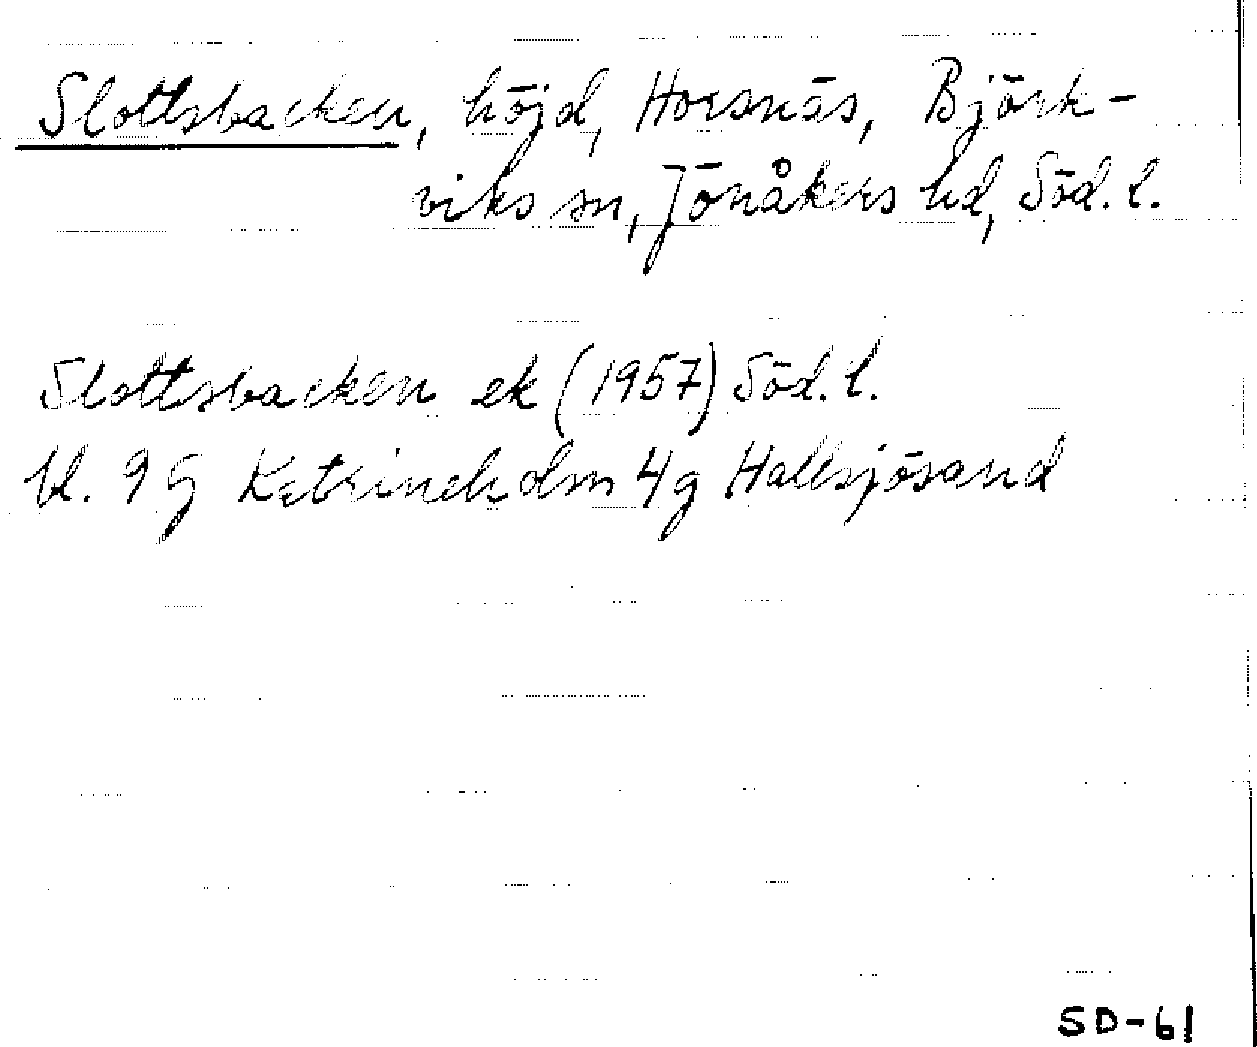 Slottsbacken, höjd, Horsnäs, Björk-
viks sn, Jönåkers hd, Söd. l.
Slottsbacken ek (1957) Söd. l.
bl. 9 G Katrineholm 4g Hallsjösand
SD-61